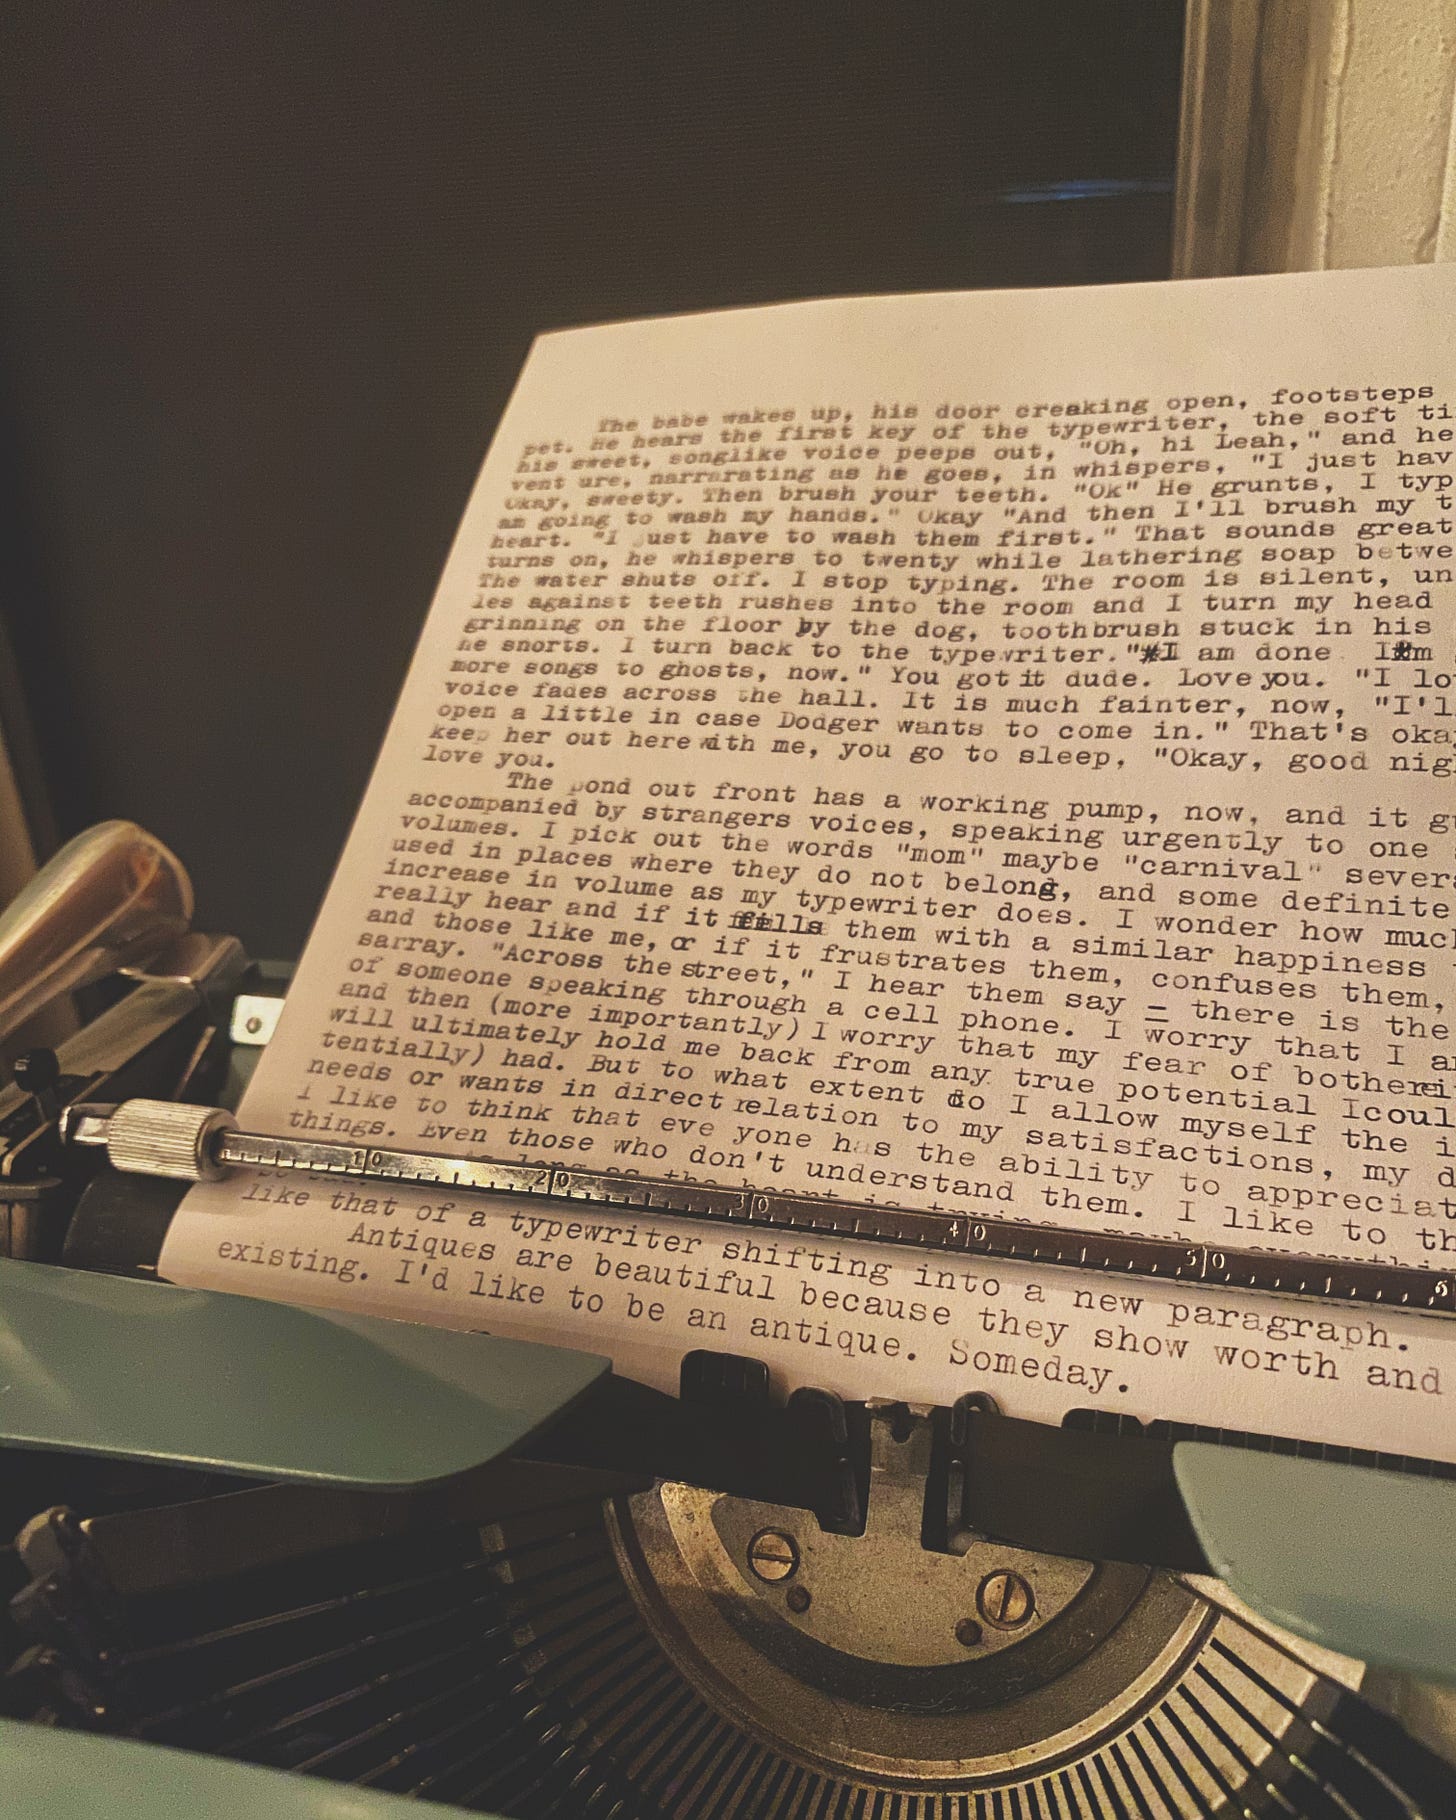 The babe wakes up, his door creaking open, footsteps
pet. He hears the first key of the typewriter, the soft ti
his sweet, songlike voice peeps out, "Oh, hi Leah," and he
vent ure, narrarating as he goes, in whispers, "I just hav
Okay, sweety. Then brush your teeth. "Ok" He grunts, I typ
am going to wash my hands." Okay "And then I'll brush my t
heart. "I just have to wash them first." That sounds great
turns on, he whispers to twenty while lathering soap betwe
The water shuts off. I stop typing. The room is silent, un
les against teeth rushes into the room and I turn my head
grinning on the floor by the dog, toothbrush stuck in his
he snorts. I turn back to the typewriter." I am done I'm
more songs to ghosts, now." You got it dude. Love you. "I lo
voice fades across the hall. It is much fainter, now, "I'l
open a little in case Dodger wants to come in." That's oka
keep her out here with me, you go to sleep, "Okay, good nig
love you.
The pond out front has a working pump, now, and it g
accompanied by strangers voices, speaking urgently to one
volumes. I pick out the words "mom" maybe "carnival" sever
used in places where they do not belong, and some definite
increase in volume as my typewriter does. I wonder how muc
really hear and if it fills them with a similar happiness
and those like me, or if it frustrates them, confuses them,
sarray. "Across the street," I hear them say - there is the
of someone speaking through a cell phone. I worry that I a
and then (more importantly) I worry that my fear of botheri
will ultimately hold me back from any true potential Icoul
tentially) had. But to what extent do I allow myself the i
needs or wants in direct relation to my satisfactions, my d
I like to think that eve yone has the ability to appreciat
things. Even those who don't understand them. I like to th
as long as the heart is trying, maybe everythin
like that of a typewriter shifting into a new paragraph.
Antiques are beautiful because they show worth and
existing. I'd like to be an antique. Someday.
10 20 30 40 50 6